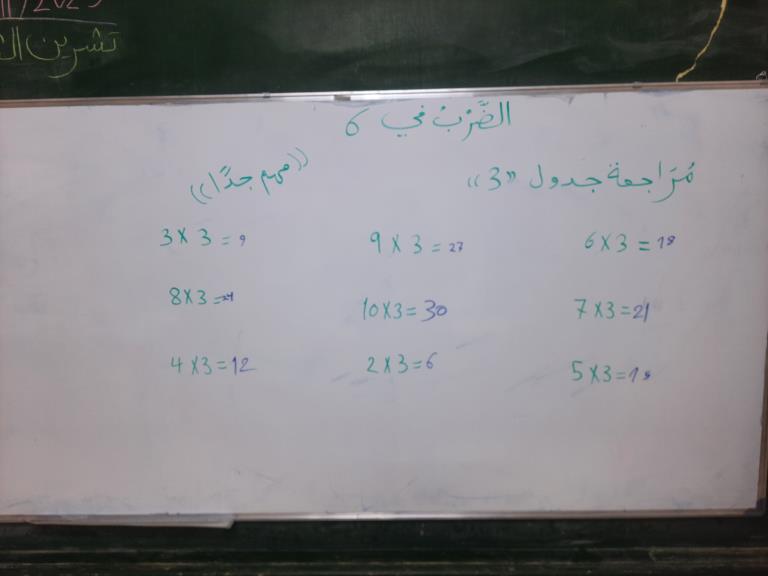 /2023
تشرين
الضَّرْبُ في 6
مُرَاجعة جدول «3» ((مهم جدًا))
6 X 3 = 18 9 X 3 = 27 3 X 3 = 9
7 X 3 = 21 10 X 3 = 30 8 X 3 = 24
5 X 3 = 15 2 X 3 = 6 4 X 3 = 12